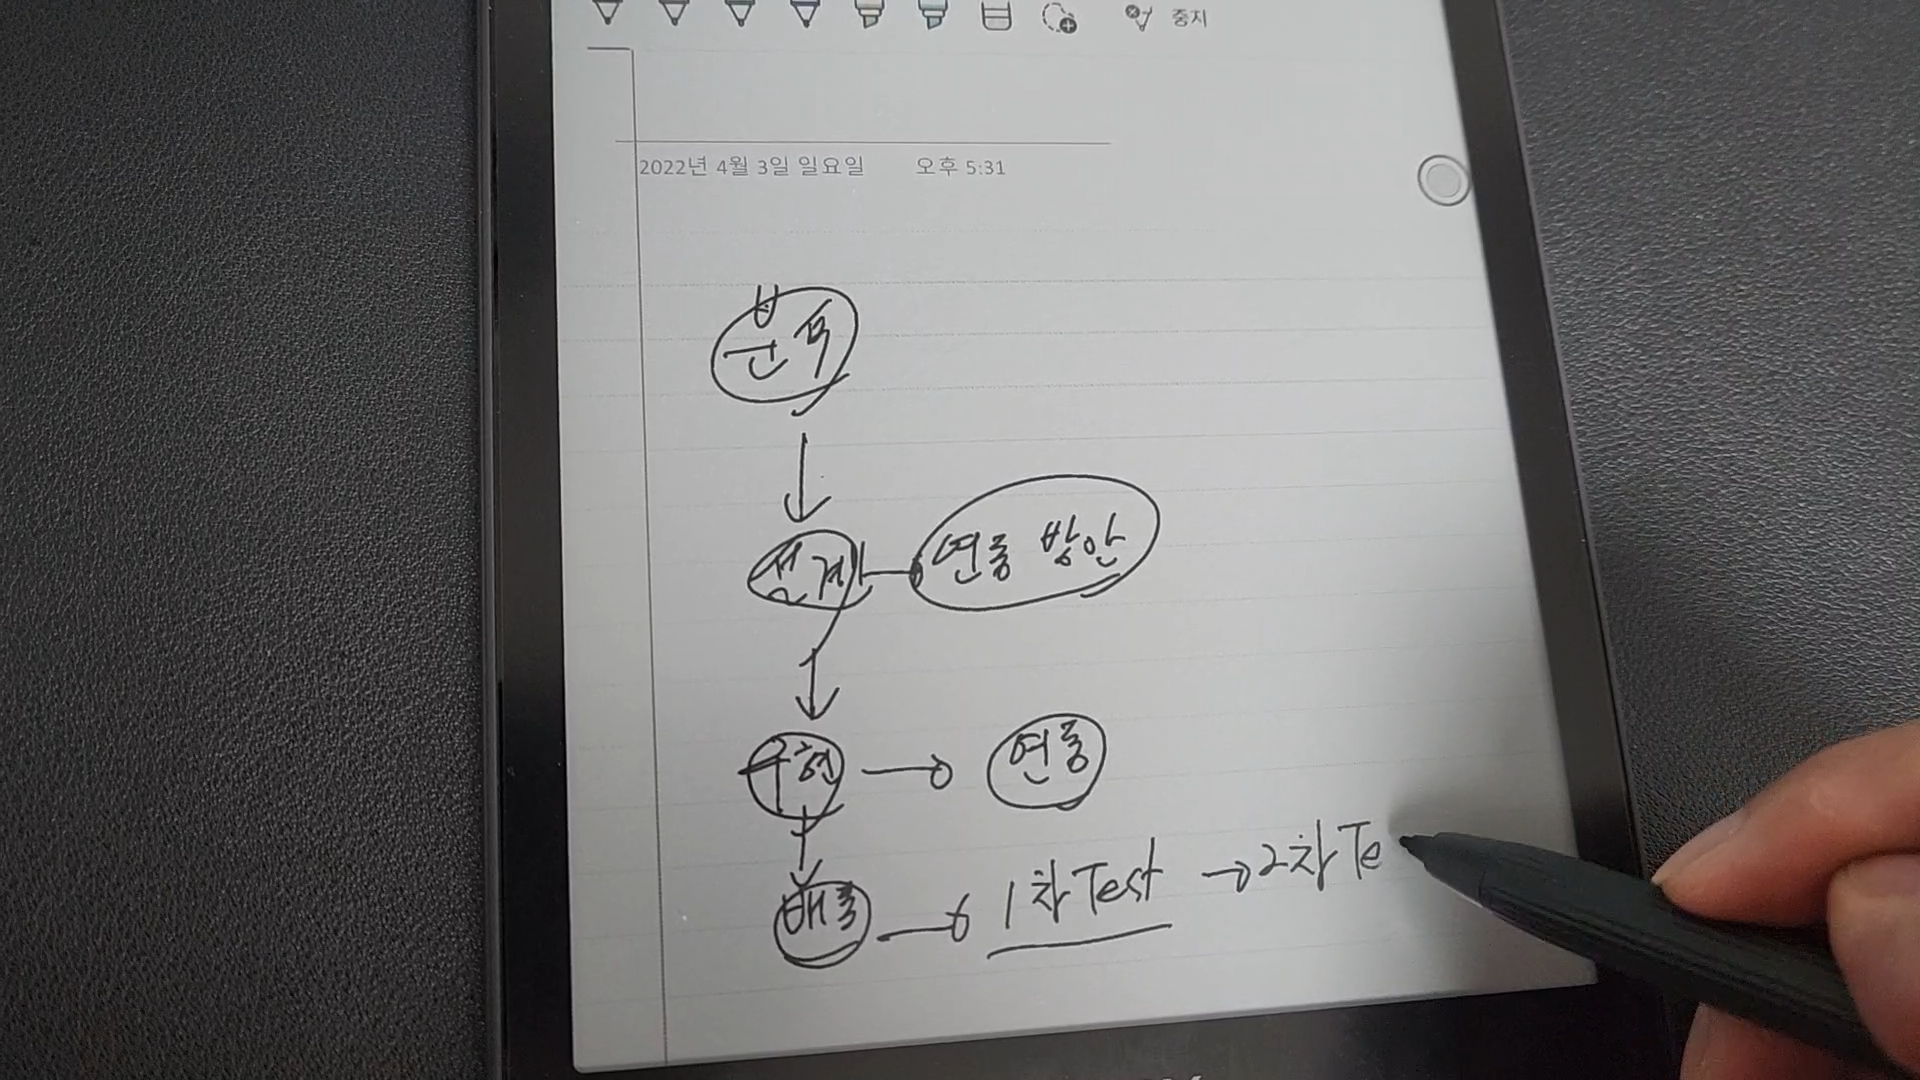 중지
2022년 4월 3일 일요일 오후 5:31
설계 연동 방안
구현 연동
배포 1차 Test → 2차 Te